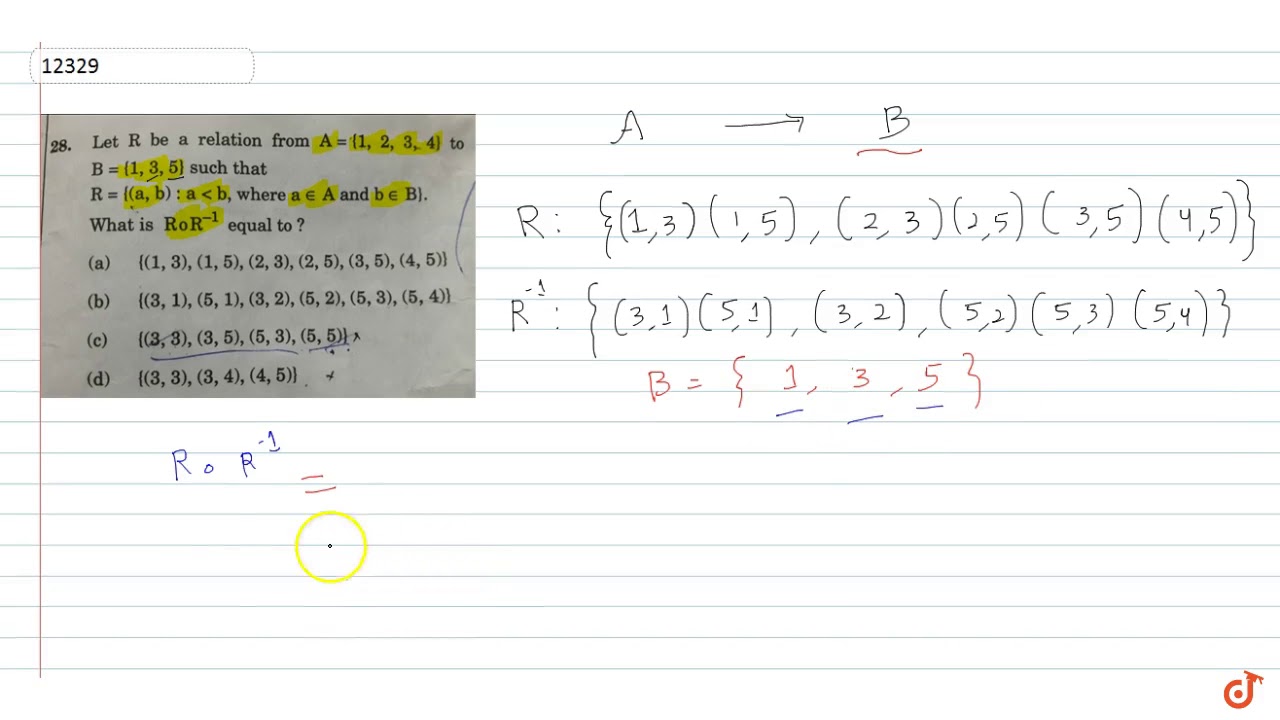 12329
28. Let R be a relation from A = {1, 2, 3, 4} to
B = {1, 3, 5} such that
R = {(a, b) : a < b, where a ∈ A and b ∈ B}.
What is RoR⁻¹ equal to ?
(a) {(1, 3), (1, 5), (2, 3), (2, 5), (3, 5), (4, 5)}
(b) {(3, 1), (5, 1), (3, 2), (5, 2), (5, 3), (5, 4)}
(c) {(3, 3), (3, 5), (5, 3), (5, 5)}
(d) {(3, 3), (3, 4), (4, 5)}
A → B
R : {(1,3) (1,5), (2,3) (2,5) (3,5) (4,5)}
R⁻¹ : {(3,1) (5,1), (3,2), (5,2) (5,3) (5,4)}
B = {1, 3, 5}
R o R⁻¹ =